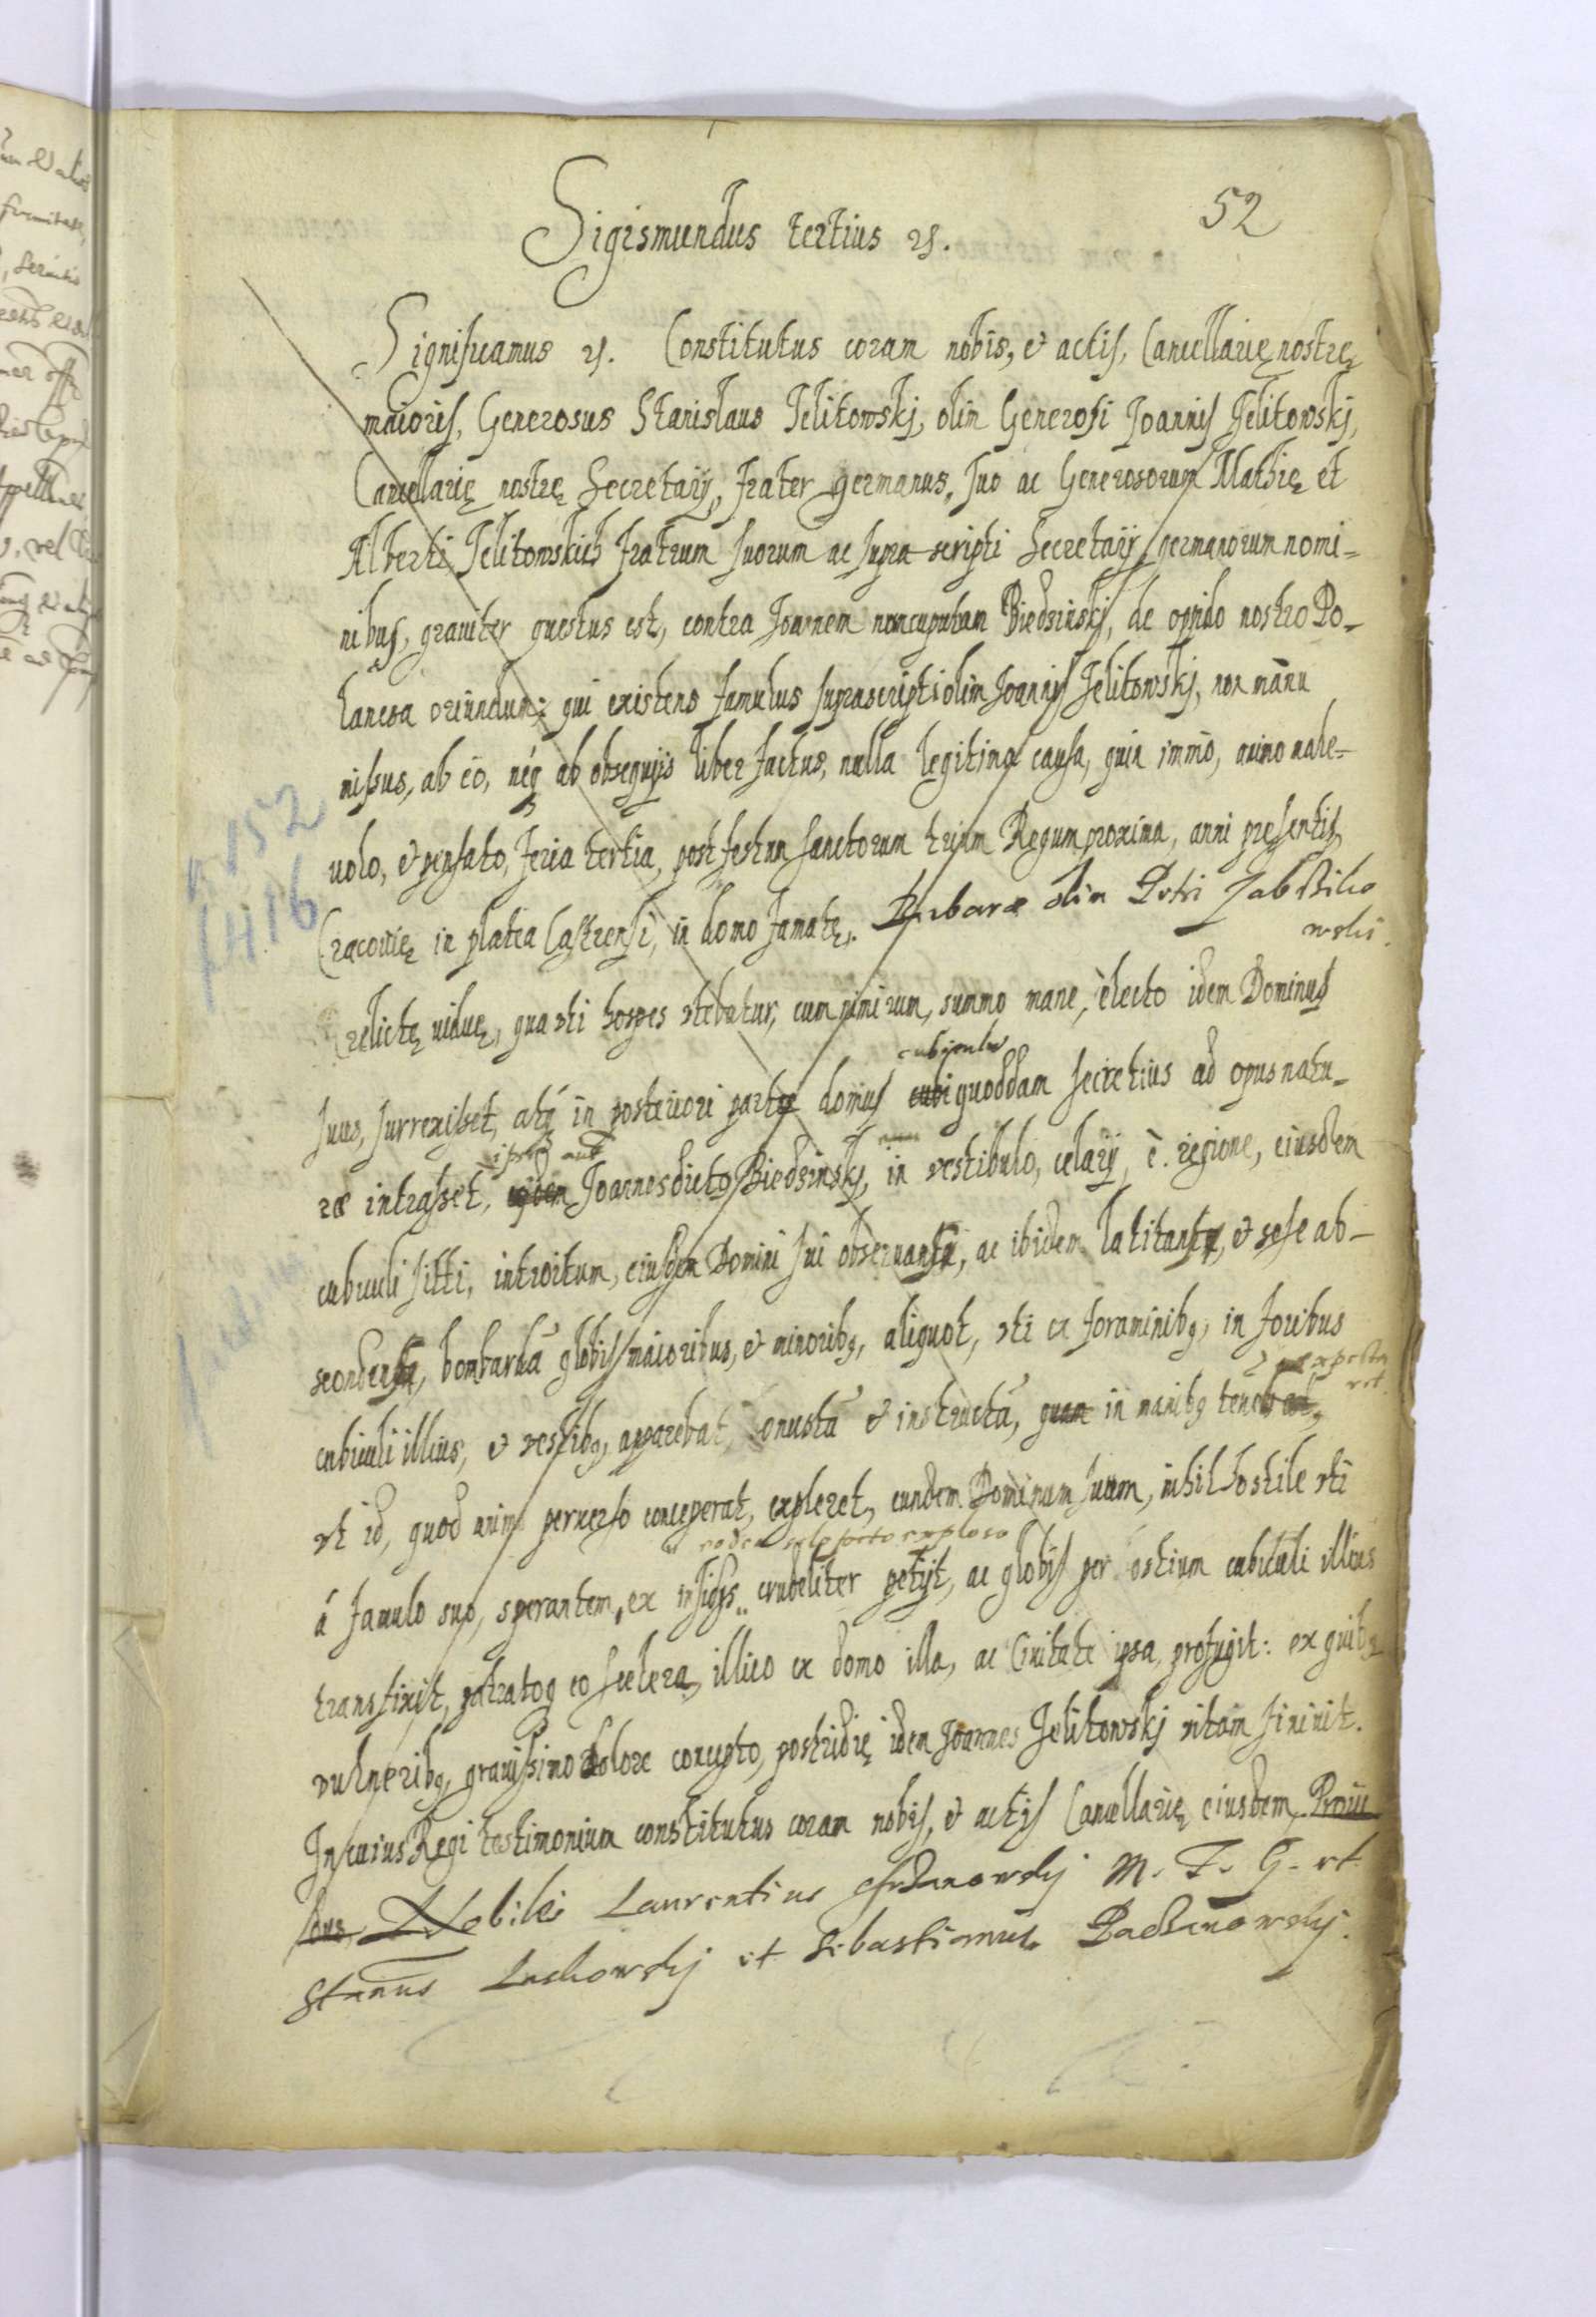 52
Sigismundus tertius etc.
Significamus etc. Constitutus coram nobis, et actis, Cancellarię nostrę
maioris, Generosus Stanislaus Jelitowskj, olim Generosi Joannis Jelitowskj,
Cancellarię nostrę Secretarij, frater germanus, suo ac Generosorum Mathię et
Alberti Jelitowskich fratrum suorum ac supra scripti Secretarij germanorum nomi-
nibus, grauiter questus est, contra Joannem nuncupatum Biedzinskj, de oppido nostro Po-
lancza oriundum: qui existens famulus suprascripti olim Joannis Jelitowskj, non manu
missus, ab eo, neq ab obsequijs liber factus, nulla legitima causa, quin immo, animo male-
uolo, et pensato, feria tertia, post festum sanctorum trium Regum proxima, anni presentis,
Cracouię in platea Castrensi, in domo famatę, Barbaræ olim Petri
relictę uiduę, qua uti hospes utebatur, cum nimirum, summo mane, è lecto idem Dominus
cubiculū
suus, surrexisset, atq in posteriori parte domus cubi quoddam secretius ad opus natu-
ræ intrasset, Joannes dicto Biedzinskj, in vestibulo, celarij, è regione, eiusdem
cubiculi sitti, introitum, eiusdem Domini sui obseruans, ac ibidem latitans, et sese ab-
scondens, bombardā globis maioribus, et minoribq, aliquot, uti ex foraminibq, in foribus
cubiculi illius, et vestibq, apparebat, onustā et instructā, quam in manibq tenebat,
vt id, quod animo peruerso conceperat, expleret, eundem Dominum suum, nihil hostile uti
eadem explosa
á famulo suo, sperantem, ex insidijs crudeliter petijt, ac globis per ostium cubiculi illius
transfixit, patratoq eo scelere, illico ex domo illa, ac Ciuitate ipsa, profugit: ex quibq
vulneribq, grauissimo dolore concepto, postridię idem Joannes Jelitowskj vitam finiuit.
In cuius Regi testimonium constitutus coram nobis, et actis Cancellarię eiusdem, Proui
dus, Nobiles Laurentius M. F. G. et
Stanus et Sebastianus